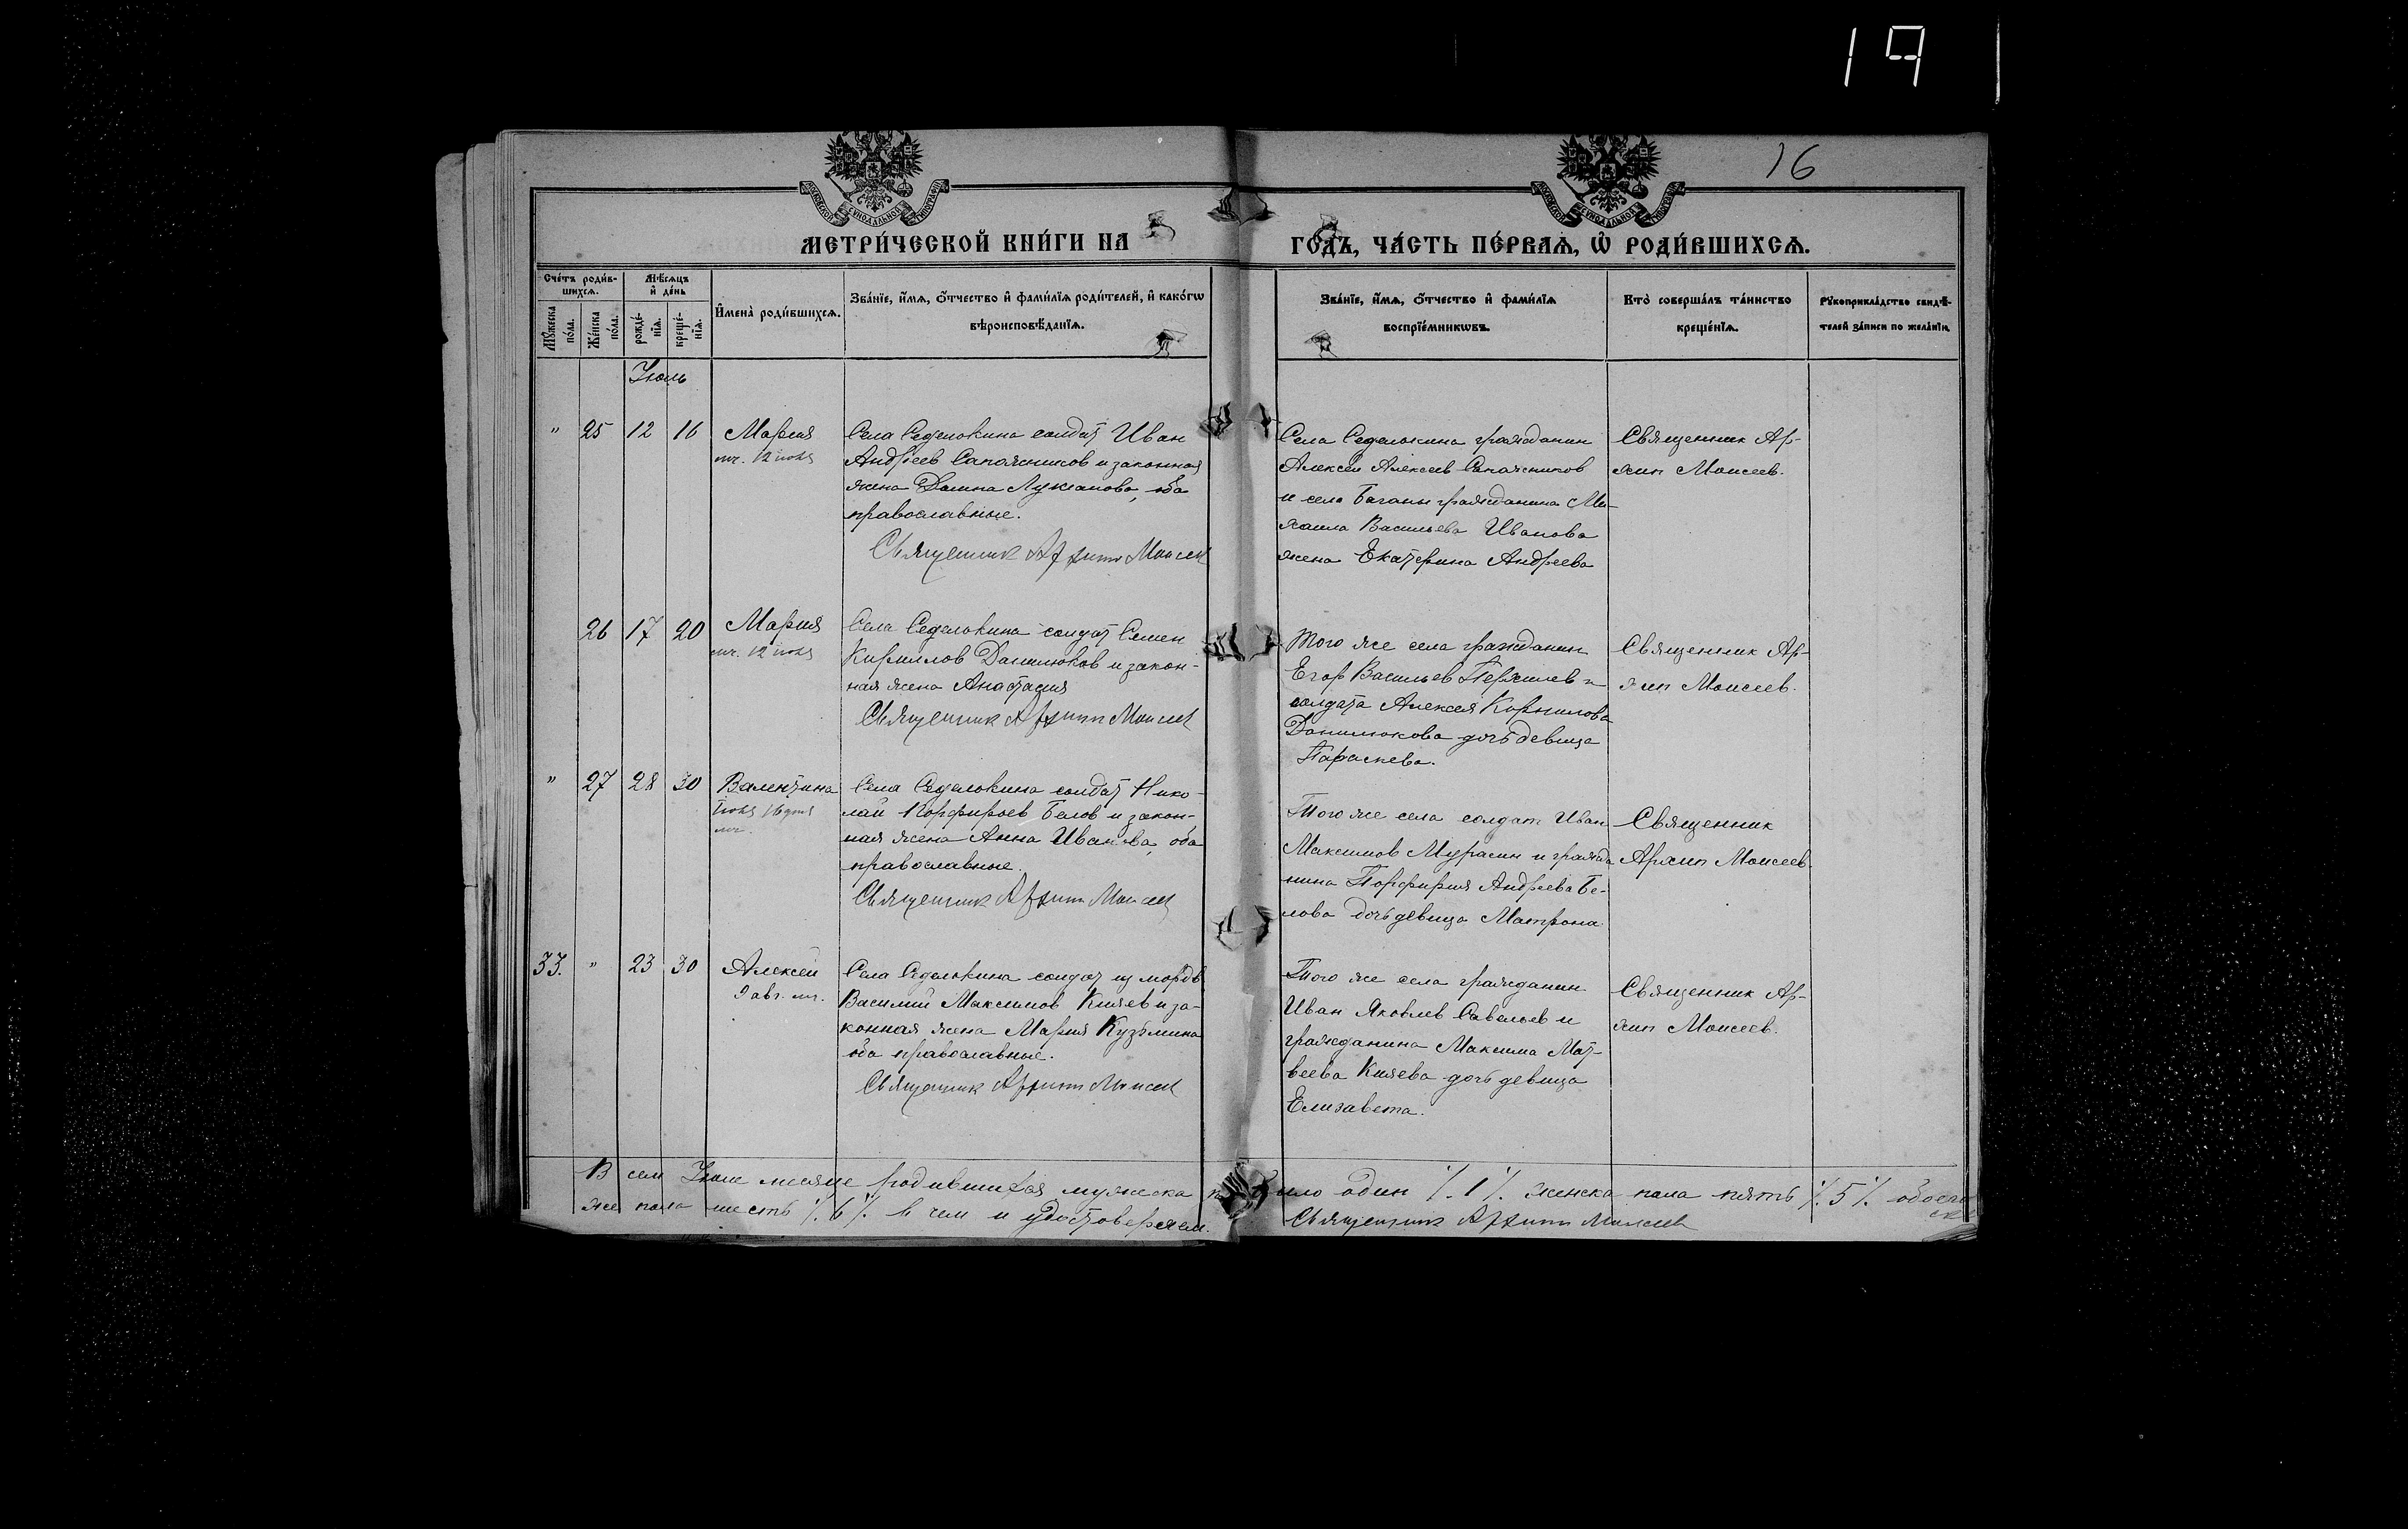 19
16
МЕТРИ́ЧЕСКОЙ КНИ́ГИ НА
ГОДЪ, ЧА́СТЬ ПЕ́РВАѦ, Ѡ҆ РОДИ́ВШИХСѦ.
Сче́тъ роди́в-
шихсѧ.
Мѣ́сѧцъ
и҆ де́нь
Мꙋ́жеска
по́ла.
Же́нска
по́ла.
рожде́-
нїѧ.
креще́-
нїѧ.
И҆мена̀ роди́вшихсѧ.
Зва́нїе, и҆́мѧ, ѻ҆́тчество и҆ фами́лїѧ роди́телей, и҆ како́гѡ
вѣроисповѣ́данїѧ.
Зва́нїе, и҆́мѧ, ѻ҆́тчество и҆ фами́лїѧ
воспрїе́мникѡвъ.
Кто̀ соверша́лъ та́инство
креще́нїѧ.
Рꙋкоприкла́дство свидѣ́-
телей за́писи по жела́нїю.
Июль
" 25 12 16
Мария
мч. 12 июля
Села Седелькина солдат Иван
Андреев Сапожников и законная
жена Домна Лукианова, оба
православные.
Священник Архипп Моисеев
Села Седелькина гражданин
Алексей Алексеев Сапожников
и села Баганы гражданина Ми-
хаила Васильева Иванова
жена Екатерина Андреева
Священник Ар-
хип Моисеев.
26 17 20
Мария
мч. 12 июля
Села Седелькина солдат Семен
Кириллов Данилюков и закон-
ная жена Анастасия
Священник Архипп Моисеев
Того же села гражданин
Егор Васильев и
солдата Алексея Корнилова
Данилюкова дочь девица
Параскева.
Священник Ар-
хип Моисеев.
" 27 28 30
Валентина
июля 16 дня
мч.
Села Седелькина солдат Нико-
лай Порфирьев Белов и закон-
ная жена Анна Иванова, оба
православные.
Священник Архипп Моисеев
Того же села солдат Иван
Максимов Мурасин и гражда
нина Порфирия Андреева Бе-
лова дочь девица Матрона
Священник
Архип Моисеев.
33. " 23 30
Алексей
9 авг. мч.
Села Седелькина солдат из мордв
Василий Максимов Князев и за-
конная жена Мария Кузьмина
оба православные.
Священник Архипп Моисеев
Того же села гражданин
Иван Яковлев Савельев и
гражданина Максима Мат-
веева Князева дочь девица
Елизавета.
Священник Ар-
хип Моисеев.
В сем Июле месяце родившихся мужеска было один ·/. 1 ·/. женска пола пять ·/. 5 ·/. обоего
же пола шесть ·/. 6 ·/. в чем и удостоверяем.
Священник Архипп Моисеев